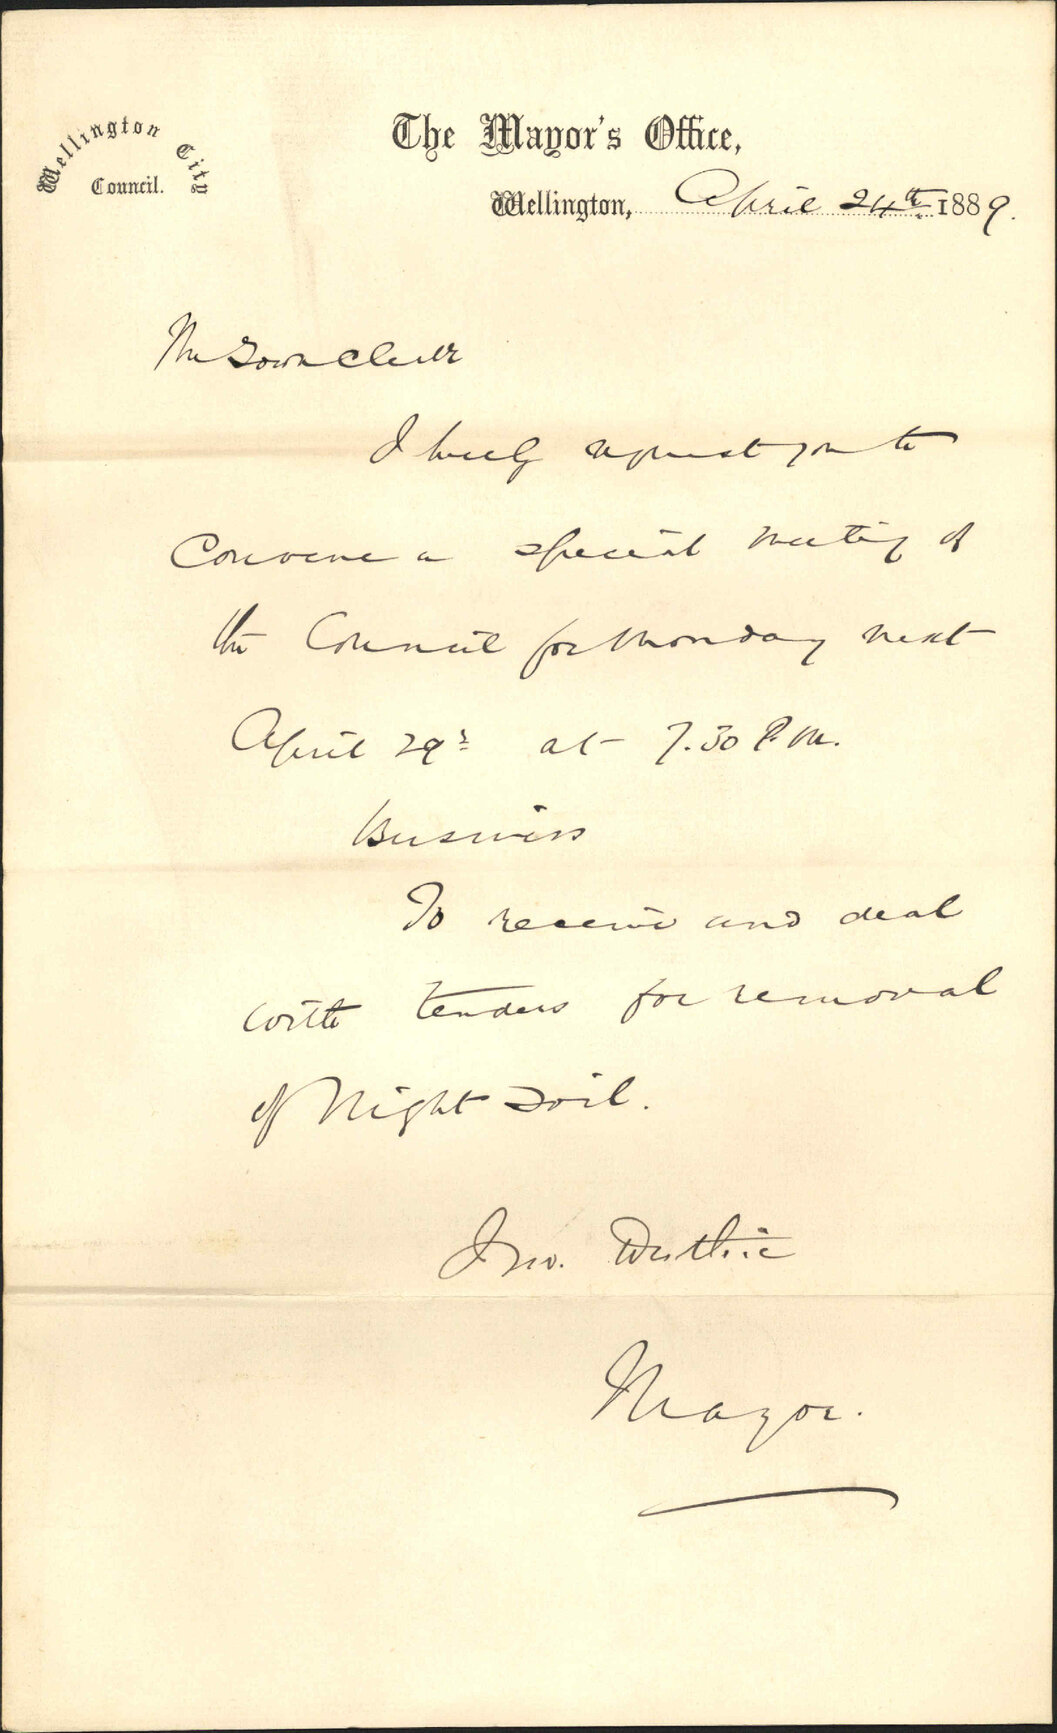 Wellington City
Council.
The Mayor's Office,
Wellington, April 24th 1889.
The Town Clerk
I hereby request you to
Convene a special meeting of
the Council for Monday next
April 29th at 7.30 P.M.
Business
To receive and deal
with tenders for removal
of Night Soil.
Jno. Duthie
Mayor.